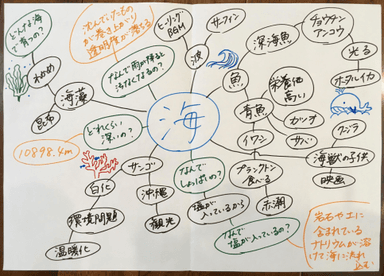 どんな海で育つの？
わかめ
昆布
海藻
沈んでいたもの
が巻き上がり
透明度が落ちる
なんで雨が降ると
汚くなるの？
ヒーリング
BGM
サーフィン
波
海
魚
深海魚
チョウチン
アンコウ
光る
ホタルイカ
栄養価
高い
青魚
サンマ
サバ
イワシ
プランクトン
食べる
クジラ
海獣の子供
映画
赤潮
どれくらい
深いの？
10898.4m
サンゴ
白化
環境問題
温暖化
沖縄
観光
なんで
しょっぱい？
塩が
入っているから
なんで
塩が入っているの？
岩石や土に
含まれている
ナトリウムが溶
けて海に流れ